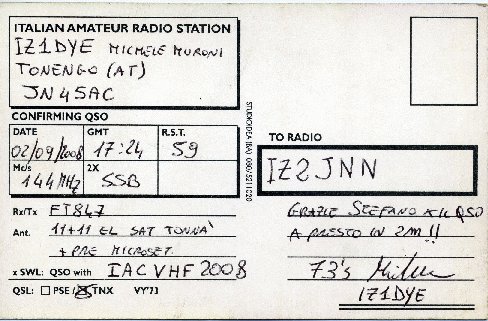 ITALIAN AMATEUR RADIO STATION
IZ1DYE MICHELE MURONI
TONENGO (AT)
JN45AC
CONFIRMING QSO
DATE GMT R.S.T.
02/09/2008 17:24 59
Mc/s 2X
144 MHz SSB
Rx/Tx FT847
Ant. 11+11 EL SAT TONNA'
+ PRE MICROSET
x SWL: QSO with IAC VHF 2008
QSL: PSE TNX VY'73
TO RADIO
IZ2JNN
GRAZIE STEFANO X IL QSO
A PRESTO IN 2M!!
73's
IZ1DYE